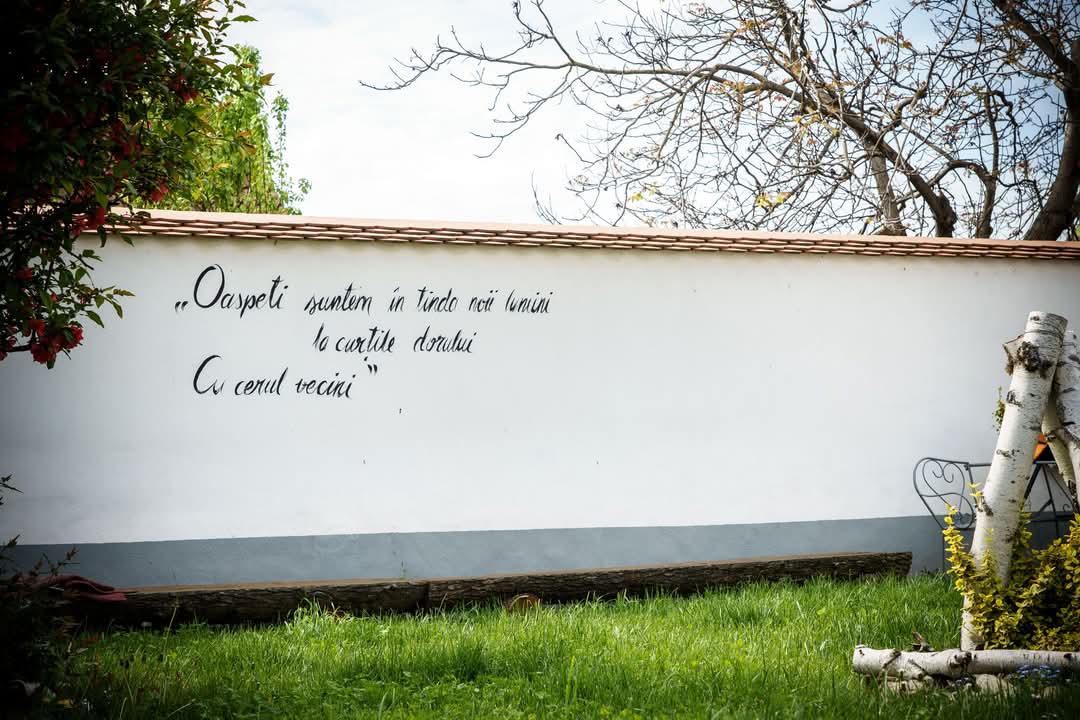 „Oaspeti suntem în tinda noii lumini
la curtile dorului
Cu cerul vecini”